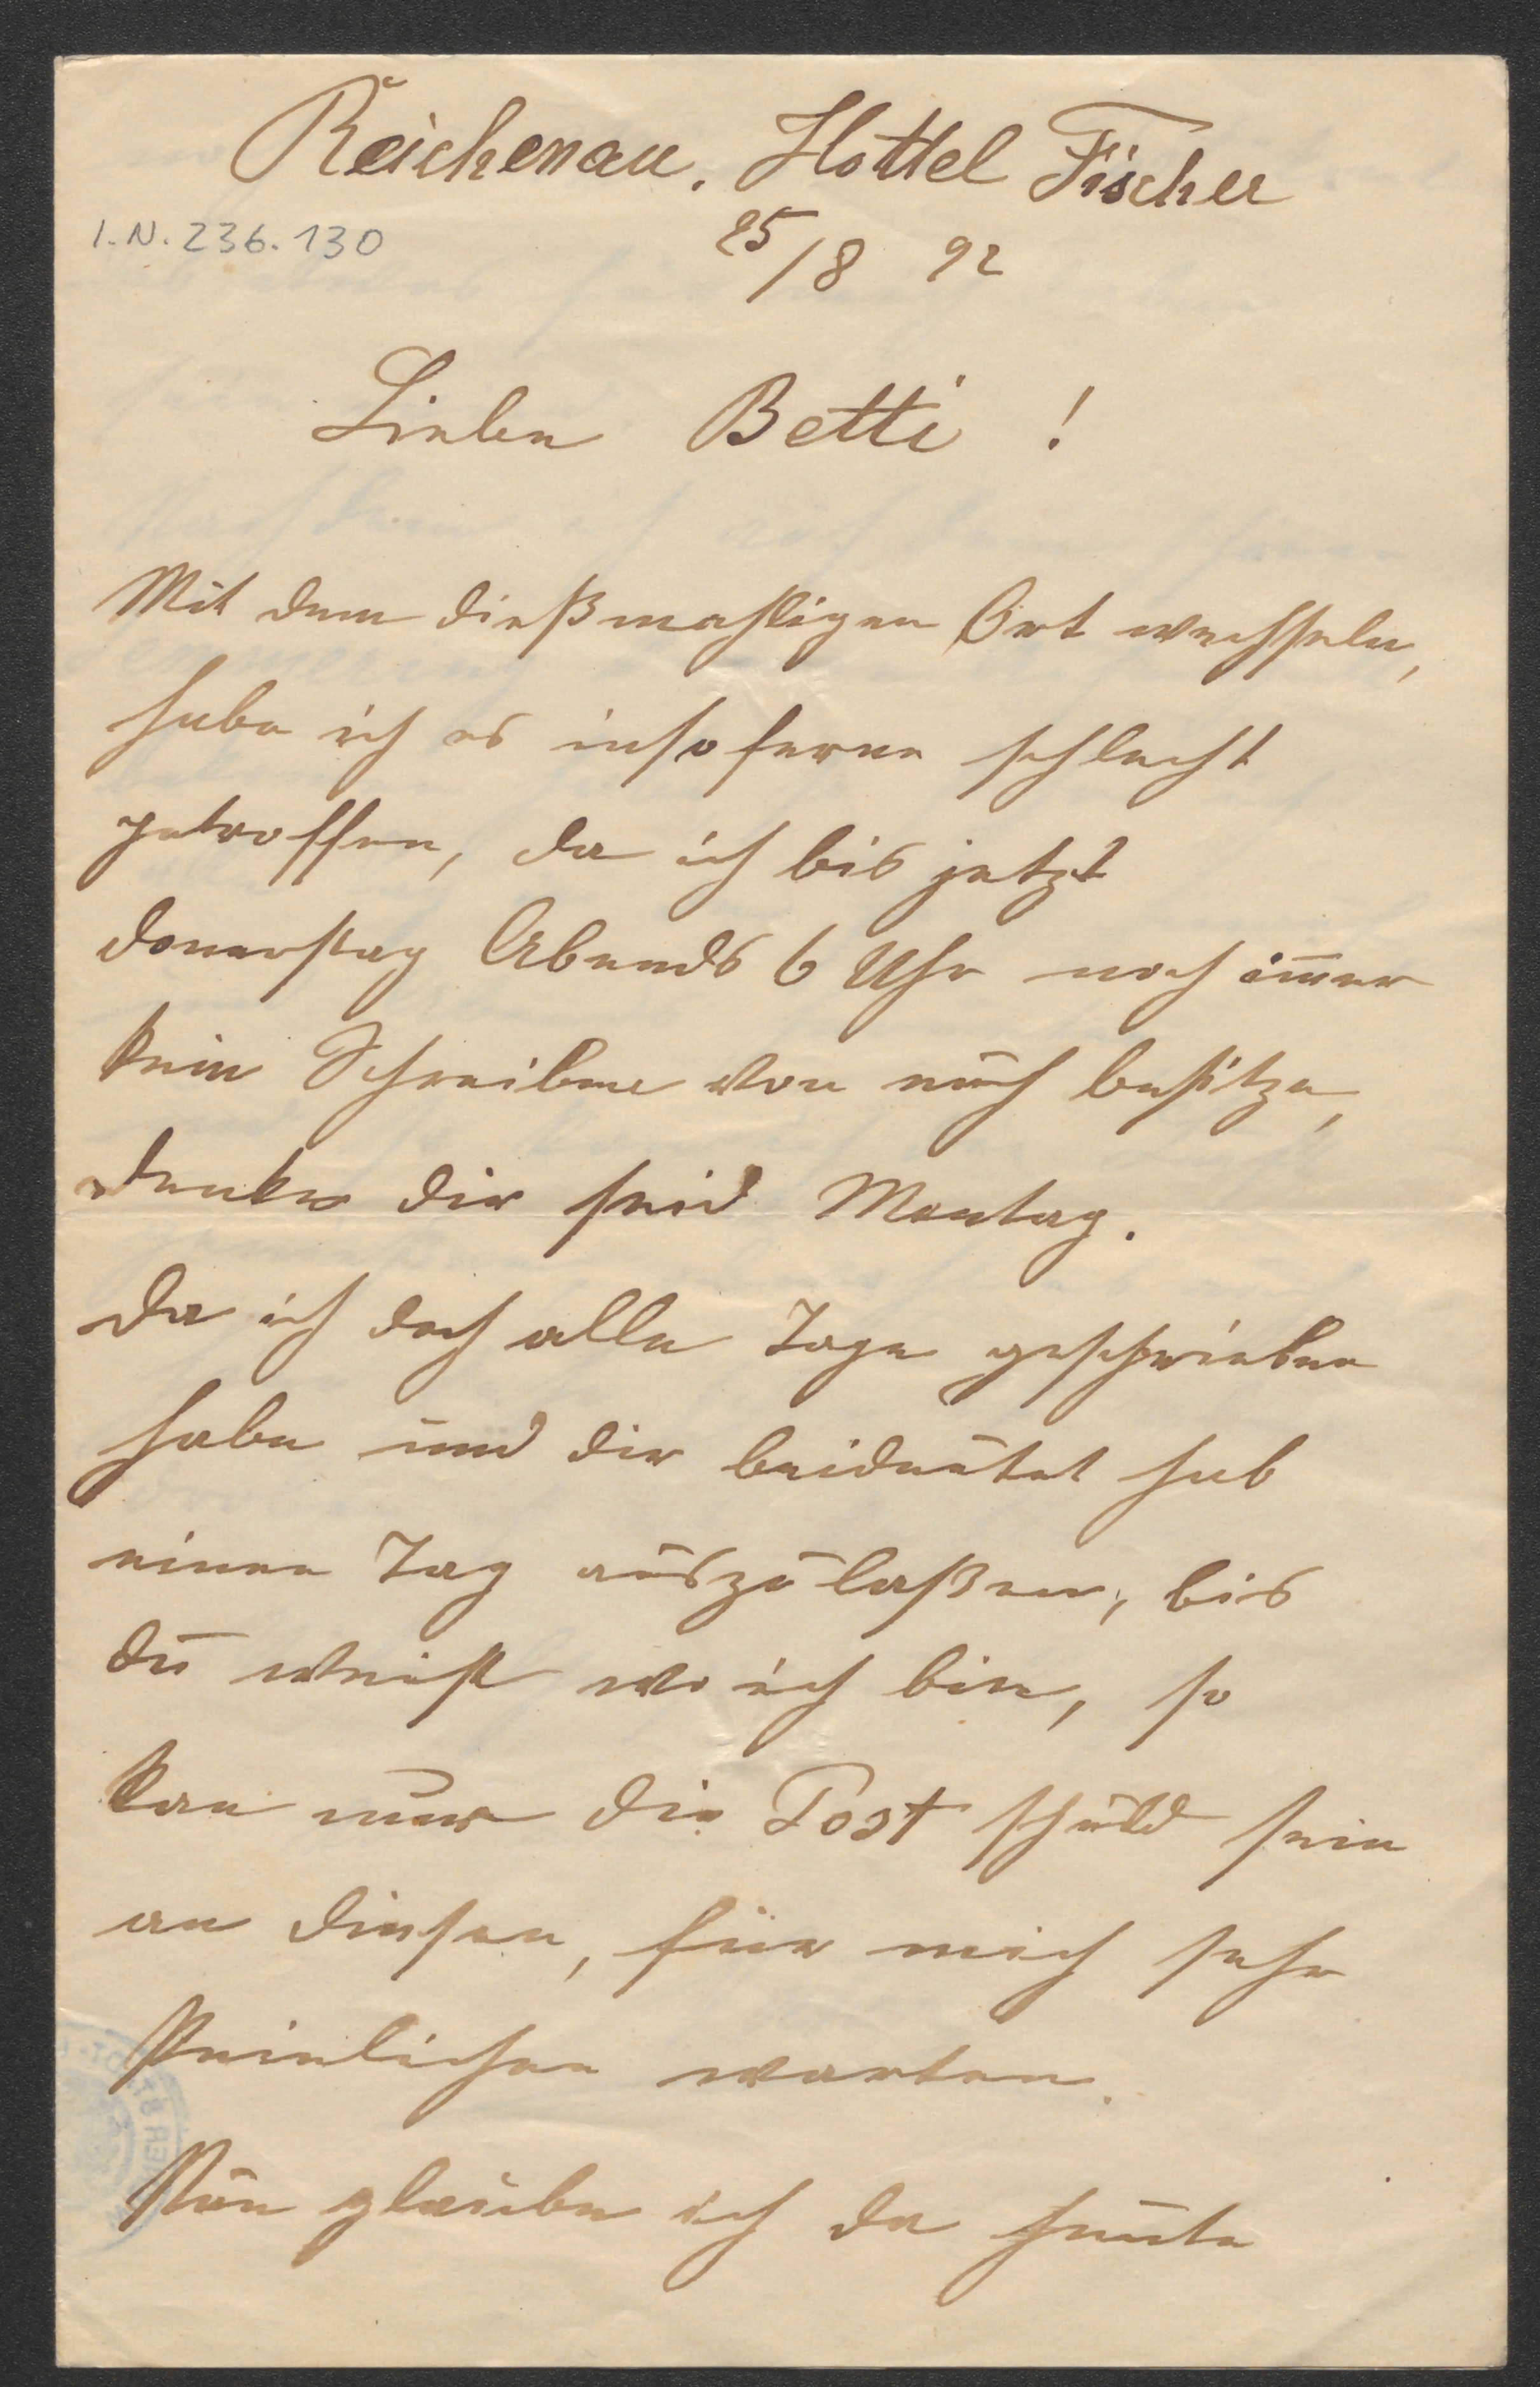 Reichenau. Hottel Fischer
I.N. 236.130
25/8 92
Liebe Betti !
Mit dem dießmahligen Ort wechseln,
habe ich es insoferne schlecht
getroffen, da ich bis jetzt
donerstag Abends 6 Uhr noch im̅er
kein Schreiben von euch besitze,
denke dir seid Montag.
Da ich doch alle Tage geschrieben
habe und dir beideutet hab
einen Tag auszulaßen, bis
du weist wo ich bin, so
kan nur die Post schuld sein
an diesen, für mich sehr
Peinlichen warten.
Nun glaube ich da heute